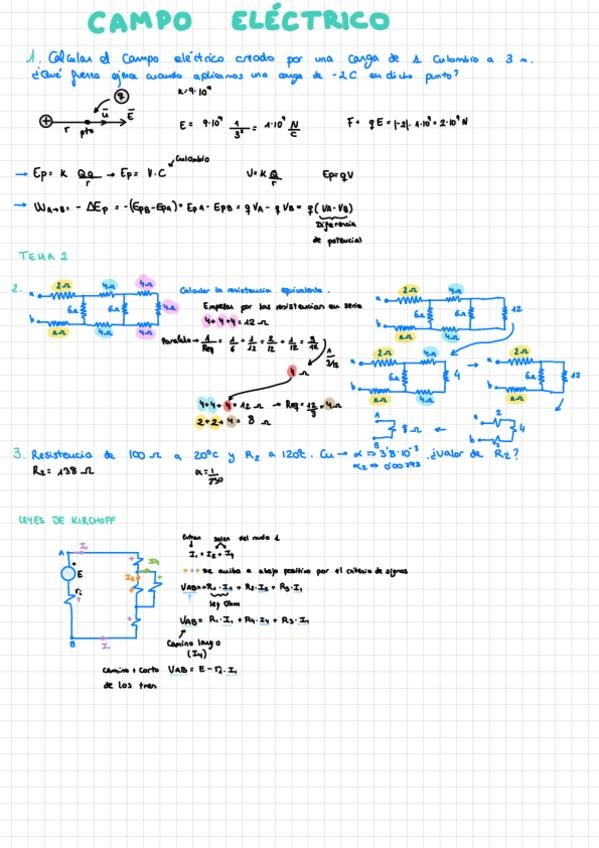 CAMPO ELÉCTRICO
1. Calcular el campo eléctrico creado por una carga de 1 Culombio a 3 m.
¿Qué fuerza ejerce cuando aplicamos una carga de -2C en dicho punto?
K=9·10⁹
q
+ r pto u E
E = 9·10⁹ 1/3² = 1·10⁹ N/C
F = qE = |-2|·1·10⁹ = 2·10⁹ N
Culombio
→ Ep = K Qq/r → Ep = V·C
V = K Q/r
Ep = qV
→ WA→B = -ΔEp = -(EpB-EpA) = EpA - EpB = qVA - qVB = q(VA-VB)
Diferencia
de potencial
TEMA 2
2. Calcular la resistencia equivalente.
a 2Ω 4Ω 4Ω
6Ω 6Ω 4Ω
b 2Ω 4Ω 4Ω
Empezar por las resistencias en serie
4+4+4 = 12 Ω
Paralelo → 1/Req = 1/6 + 1/12 = 2/12 + 1/12 = 3/12
1/3/12
4 Ω
4+4+4 = 12 Ω → Req = 12/3 = 4Ω
2+2+4 = 8 Ω
a 2Ω 4Ω
6Ω 6Ω 12
b 2Ω 4Ω
a 2Ω 4Ω
6Ω 4
b 2Ω 4Ω
→
a 2Ω
6Ω 12
b 2Ω
A 8Ω B
←
a 2 4
b 2
3. Resistencia de 100 Ω a 20°C y R2 a 120°C. Cu → α => 3'8·10⁻³ ¿valor de R2?
R2 = 138 Ω
α = 1/250
α2 => 0'00393
LEYES DE KIRCHOFF
A I1
E
ri
B I1
I2 I4
Entran salen del nudo 1
I1 = I2 + I4
+ + + se arriba a abajo positivo por el criterio de signos
VAB = +R1·I1 + R2·I2 + R3·I1
ley Ohm
VAB = R1·I1 + R4·I4 + R3·I1
Camino largo
(I4)
camino + corto VAB = E - ri·I1
de los tres